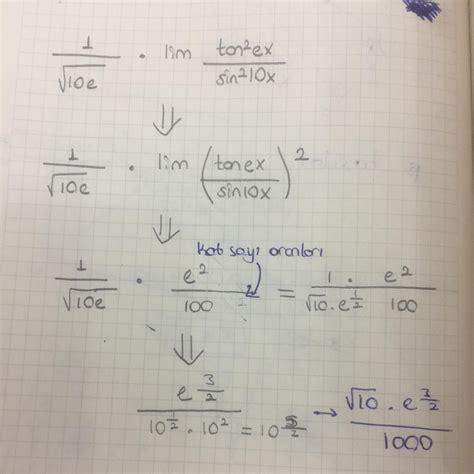 1/√10e · lim tan²ex/sin²10x
⇓
1/√10e · lim (tanex/sin10x)²
⇓
Kat sayı oranları
1/√10e · e²/100 = 1/(√10 · e^(1/2)) · e²/100
⇓
e^(3/2)/(10^(1/2) · 10²) = 10^(5/2) → √10 · e^(3/2)/1000